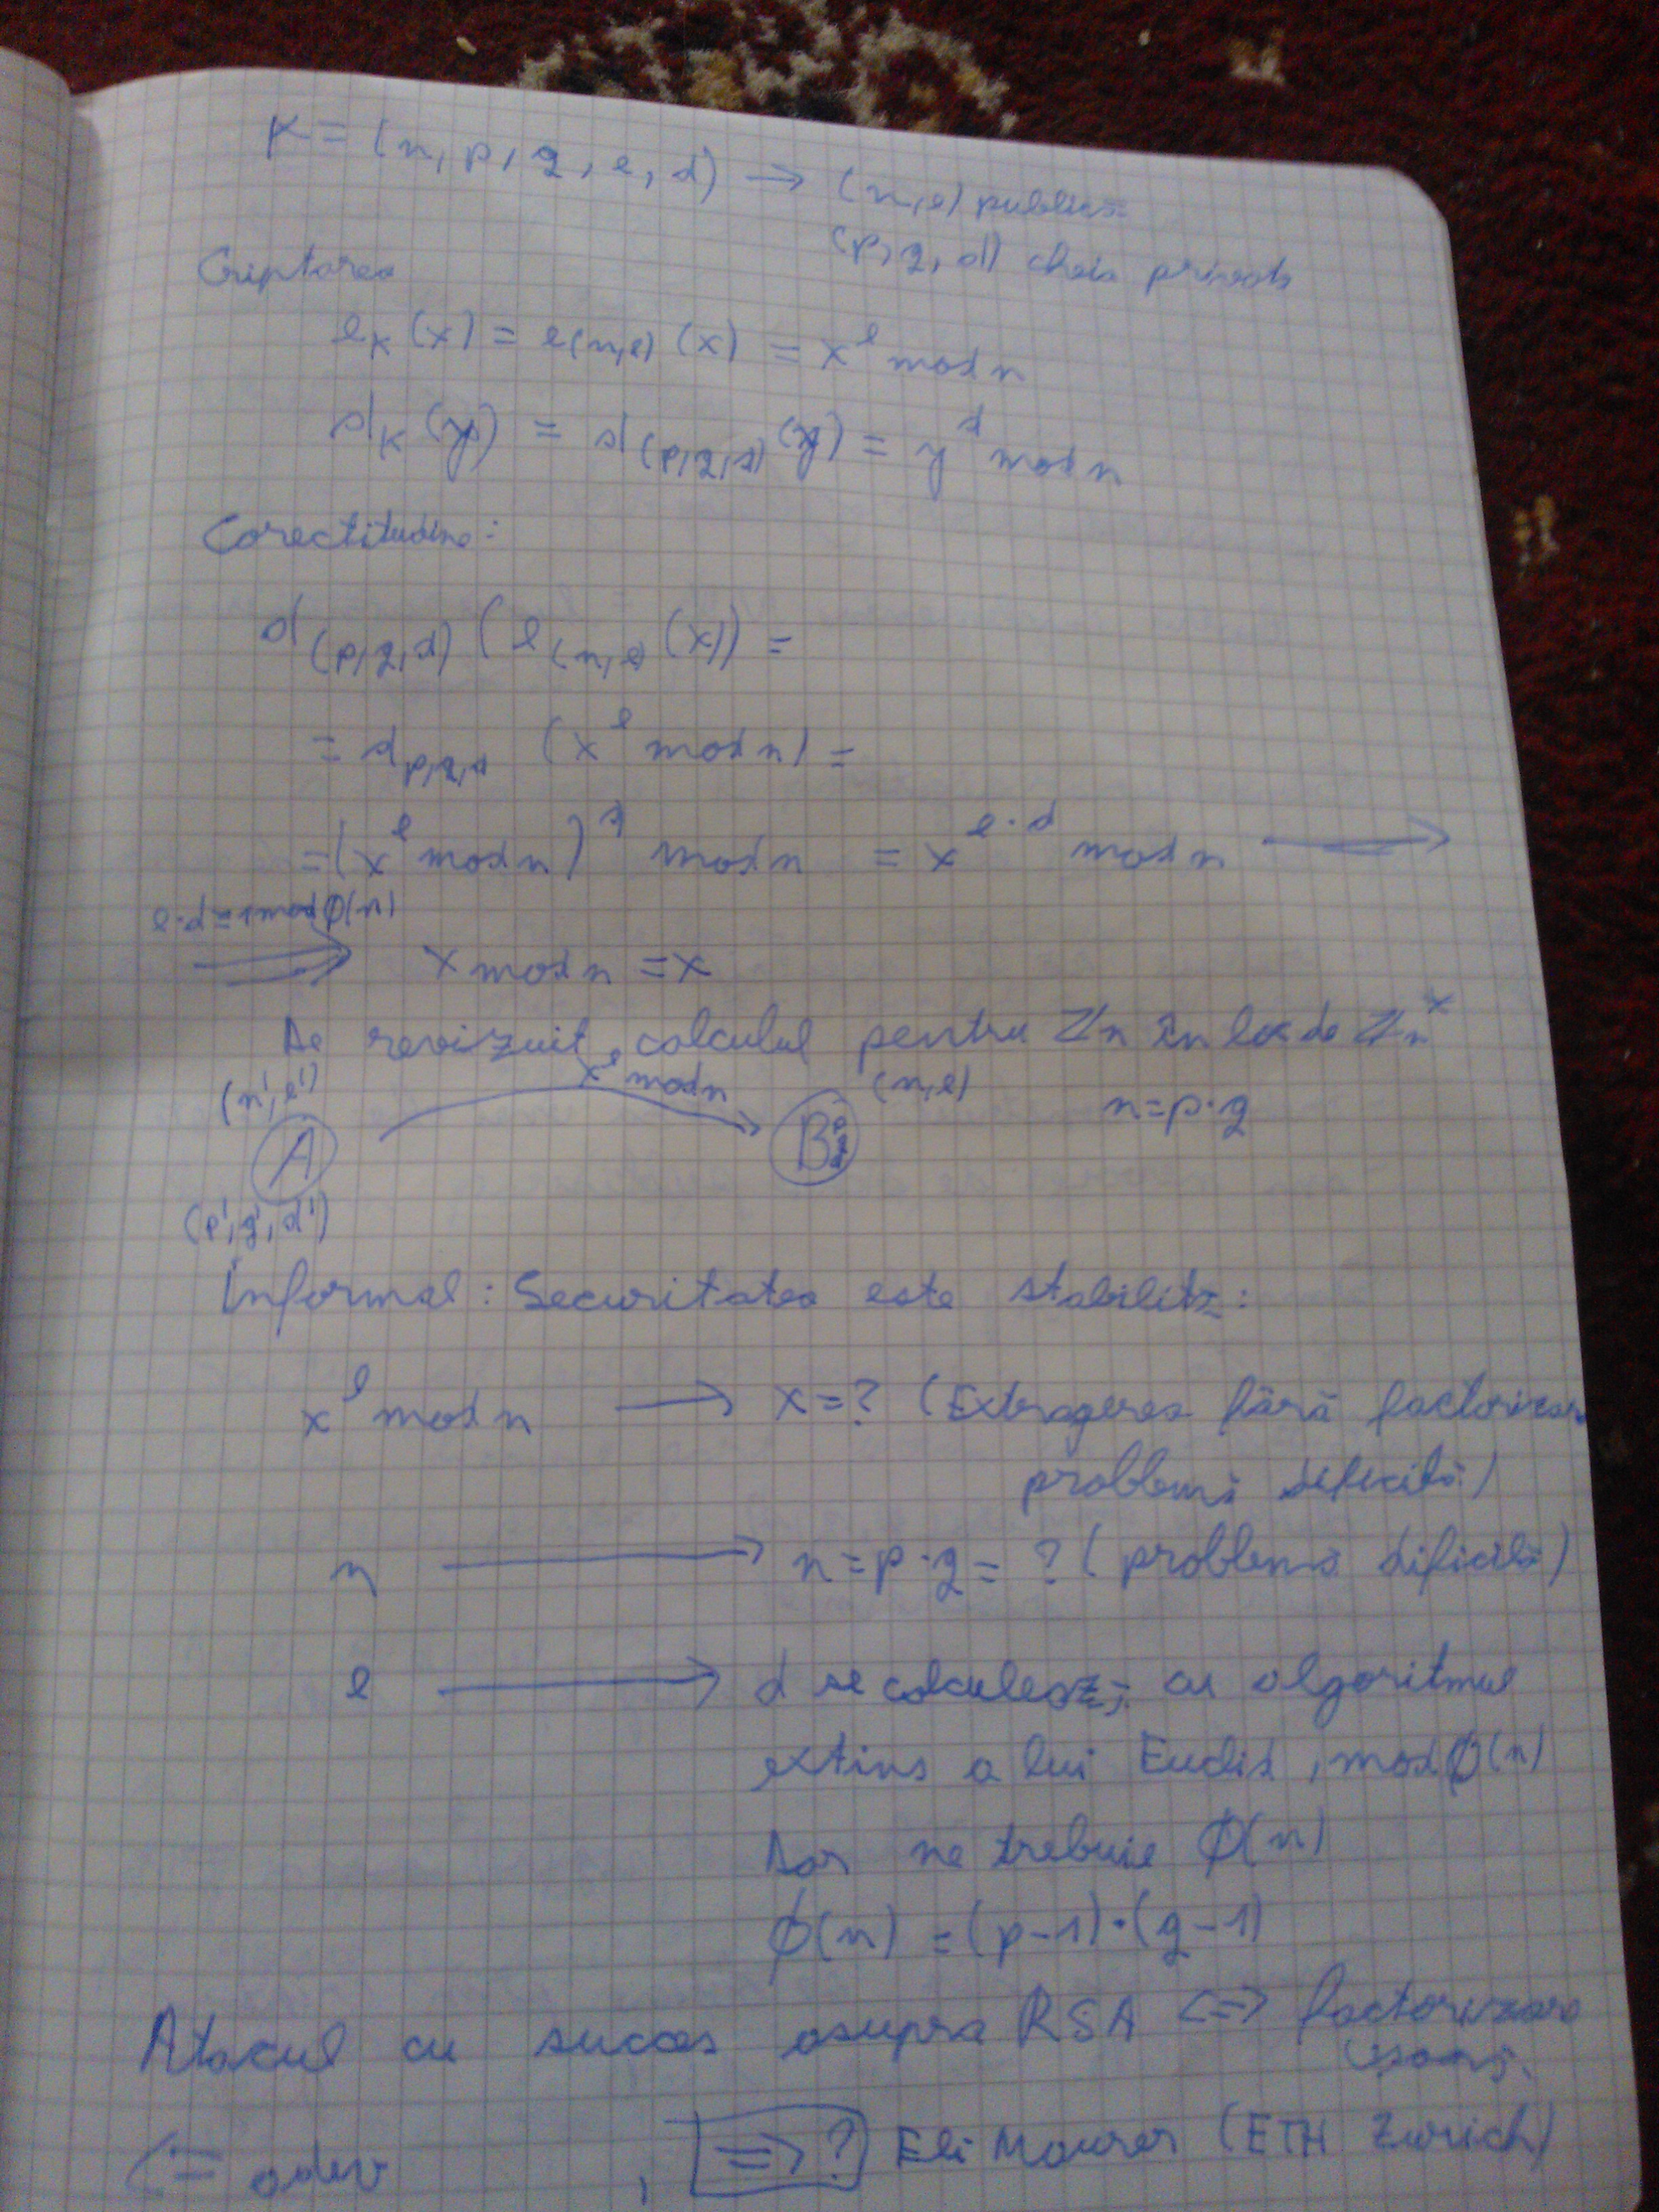 K = (n, p, q, e, d) → (n,e) publică
(p, q, d) cheia privată
Criptarea
e_K(x) = e_(n,e)(x) = x^e mod n
d_K(y) = d_(p,q,d)(y) = y^d mod n
Corectitudine:
d_(p,q,d)(e_(n,e)(x)) =
= d_p,q,d (x^e mod n) =
= (x^e mod n)^d mod n = x^e·d mod n ⟹
e·d ≡ 1 mod φ(n)
⟹ x mod n = x
De revizuit calculul pentru Zn în loc de Zn^×
(n', e') x^e mod n (n,e) n=p·q
A B
(p', q', d')
Informal: Securitatea este stabilită:
x^e mod n → x=? (Extragerea fără factorizare
problemă dificilă)
n → n=p·q=? (problemă dificilă)
e → d se calculează cu algoritmul
extins a lui Euclid, mod φ(n)
Dar ne trebuie φ(n)
φ(n) = (p-1)·(q-1)
Atacul cu succes asupra RSA <=> factorizare
ușoară.
<= adev , => ? Eli Maurer (ETH Zurich)